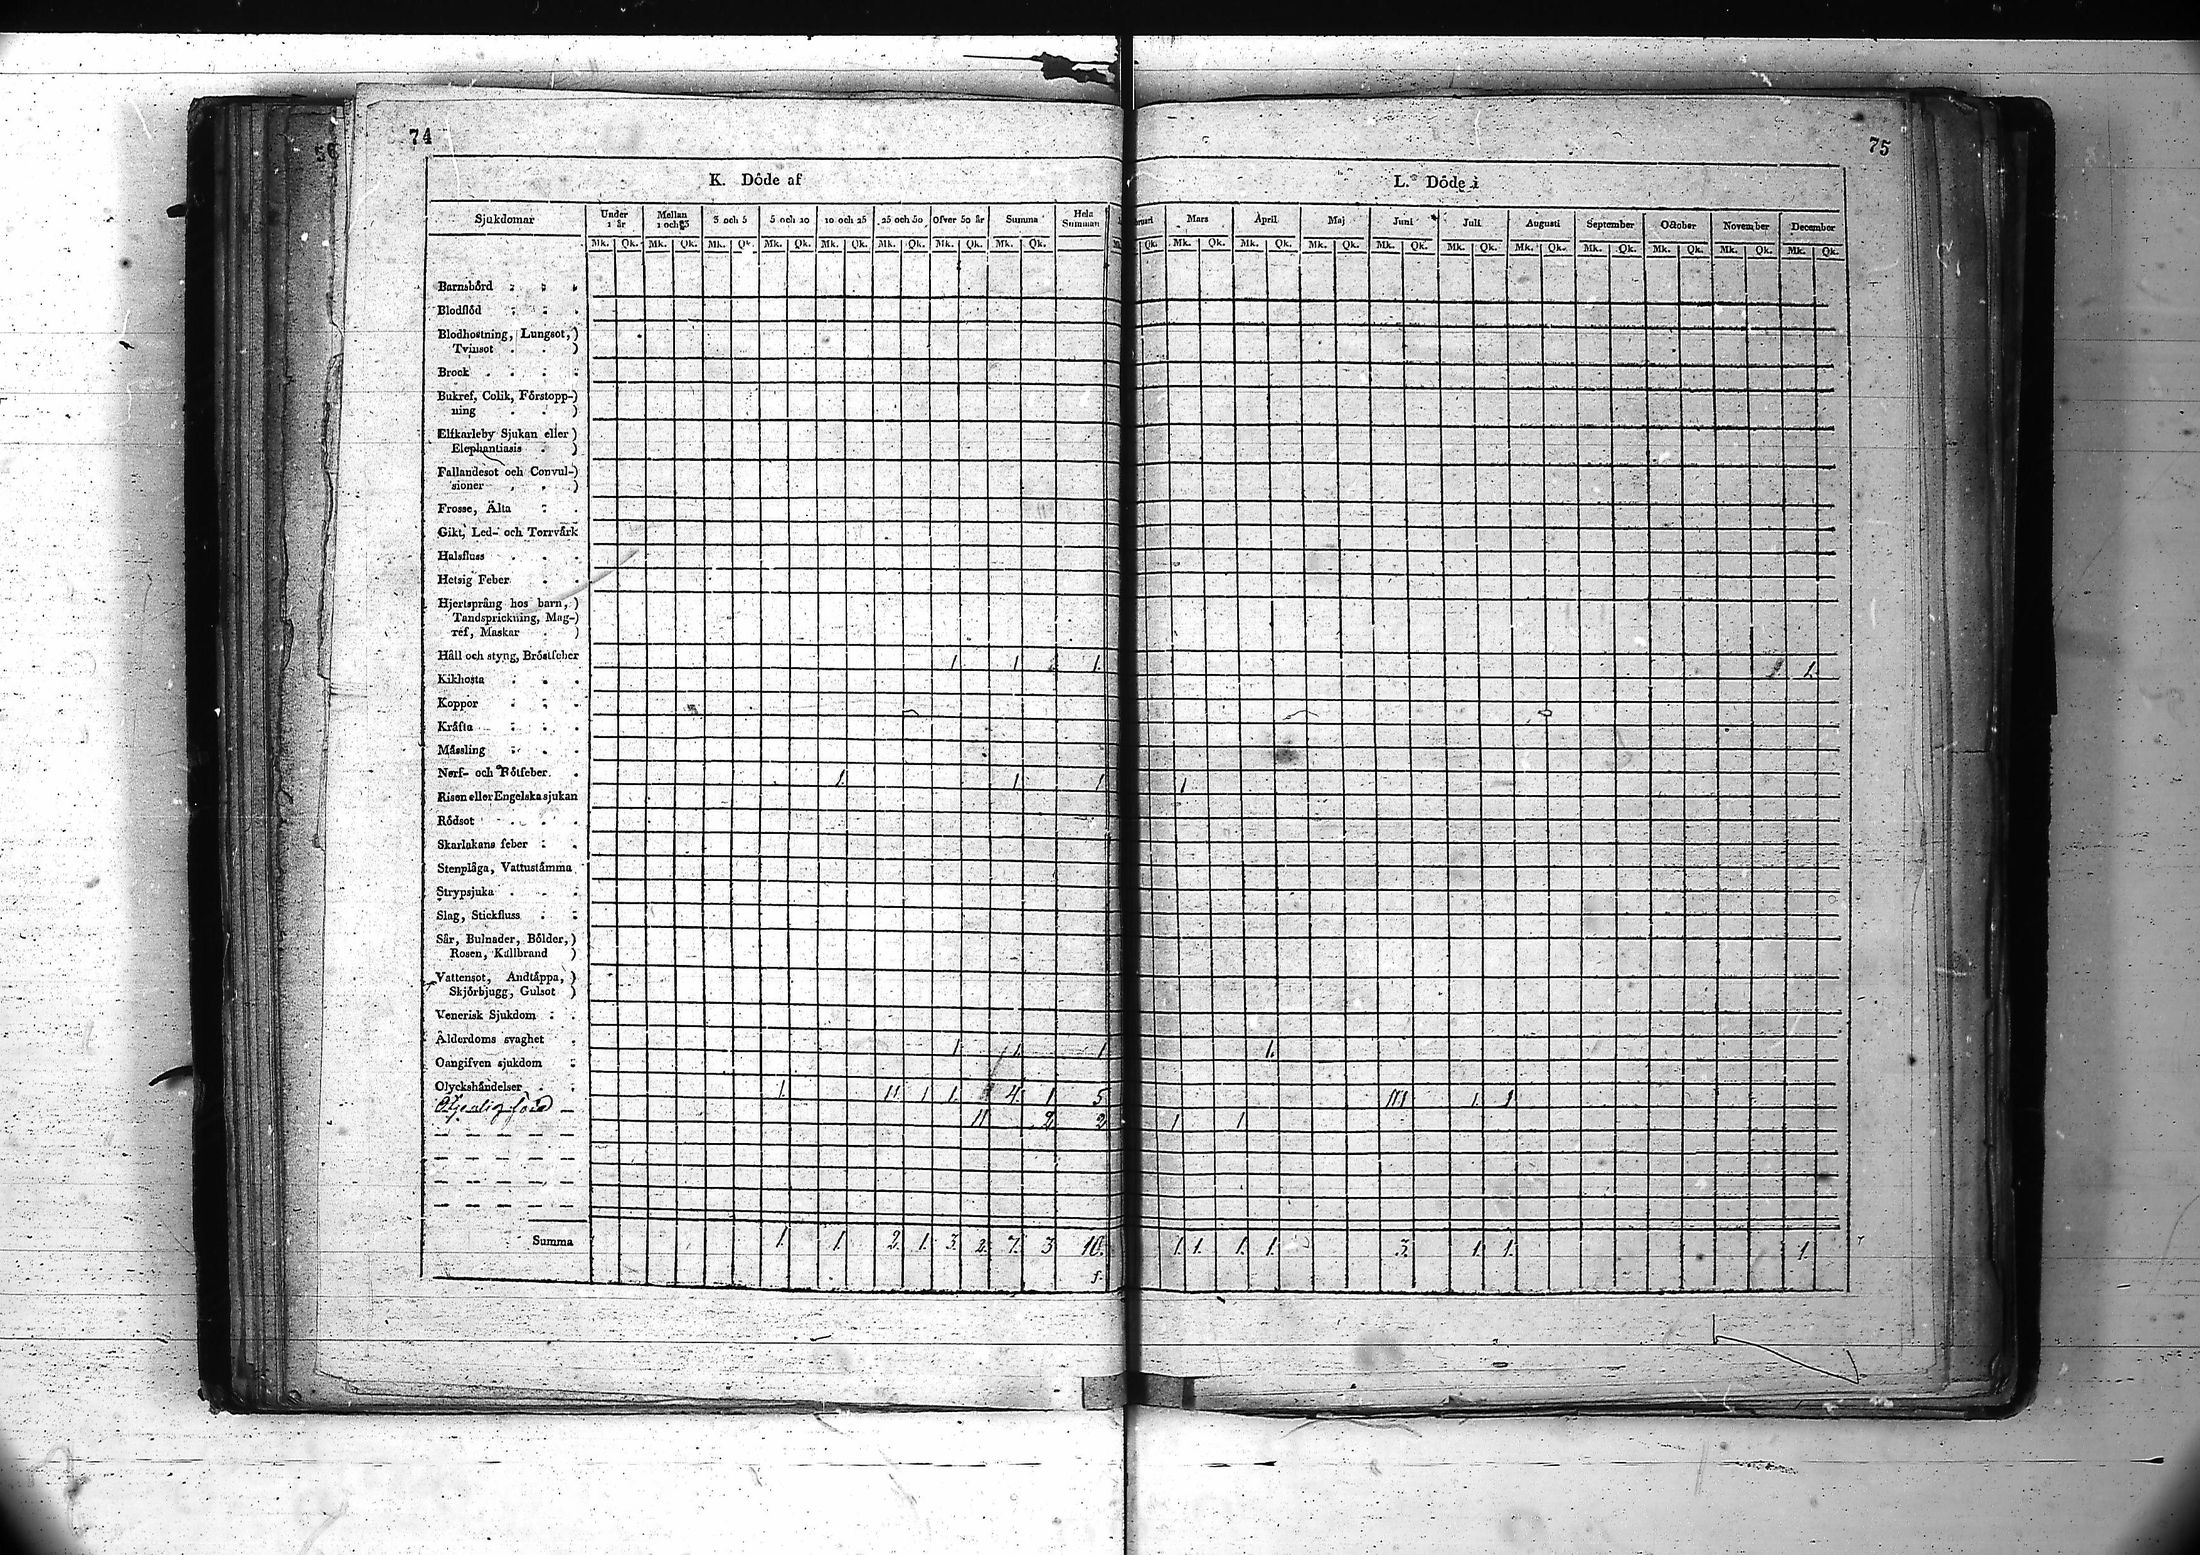 74
K. Döde af
Sjukdomar Under 1 år Mellan 1 och 3 3 och 5 5 och 10 10 och 25 25 och 50 Ofver 50 år Summa Hela Summan
Mk. Qk. Mk. Qk. Mk. Qk. Mk. Qk. Mk. Qk. Mk. Qk. Mk. Qk. Mk. Qk.
Barnsbörd
Blodflöd
Blodhostning, Lungsot,)
Tvinsot . . )
Brock
Bukref, Colik, Förstopp-)
ning . . )
Elfkarleby Sjukan eller)
Elephantiasis . )
Fallandesot och Convul-)
sioner . . )
Frosse, Älta
Gikt, Led- och Torrvärk
Halsfluss
Hetsig Feber
Hjertsprång hos barn,)
Tandsprickning, Mag-)
ref, Maskar . )
Håll och styng, Bröstfeber 1. 1. 1.
Kikhosta
Koppor
Kräfta
Mässling
Nerf- och Rötfeber 1. 1 1
Risen eller Engelska sjukan
Rödsot
Skarlakans feber
Stenplåga, Vattustämma
Strypsjuka
Slag, Stickfluss
Sår, Bulnader, Bölder,)
Rosen, Kallbrand )
Vattensot, Andtäppa,)
Skjörbjugg, Gulsot )
Venerisk Sjukdom
Ålderdoms svaghet 1 1. 1
Oangifven sjukdom
Olyckshändelser 1. 11. 1 1. 4. 1. 5
11 2 2
Summa 1. 1. 2. 1. 3. 2. 7. 3 10.
75
L. Döde i
ruari Mars April Maj Juni Juli Augusti September October November December
Qk. Mk. Qk. Mk. Qk. Mk. Qk. Mk. Qk. Mk. Qk. Mk. Qk. Mk. Qk. Mk. Qk. Mk. Qk. Mk. Qk.
1.
1
1.
111 1. 1
1 1
1. 1. 1. 1. 3. 1. 1. 1.